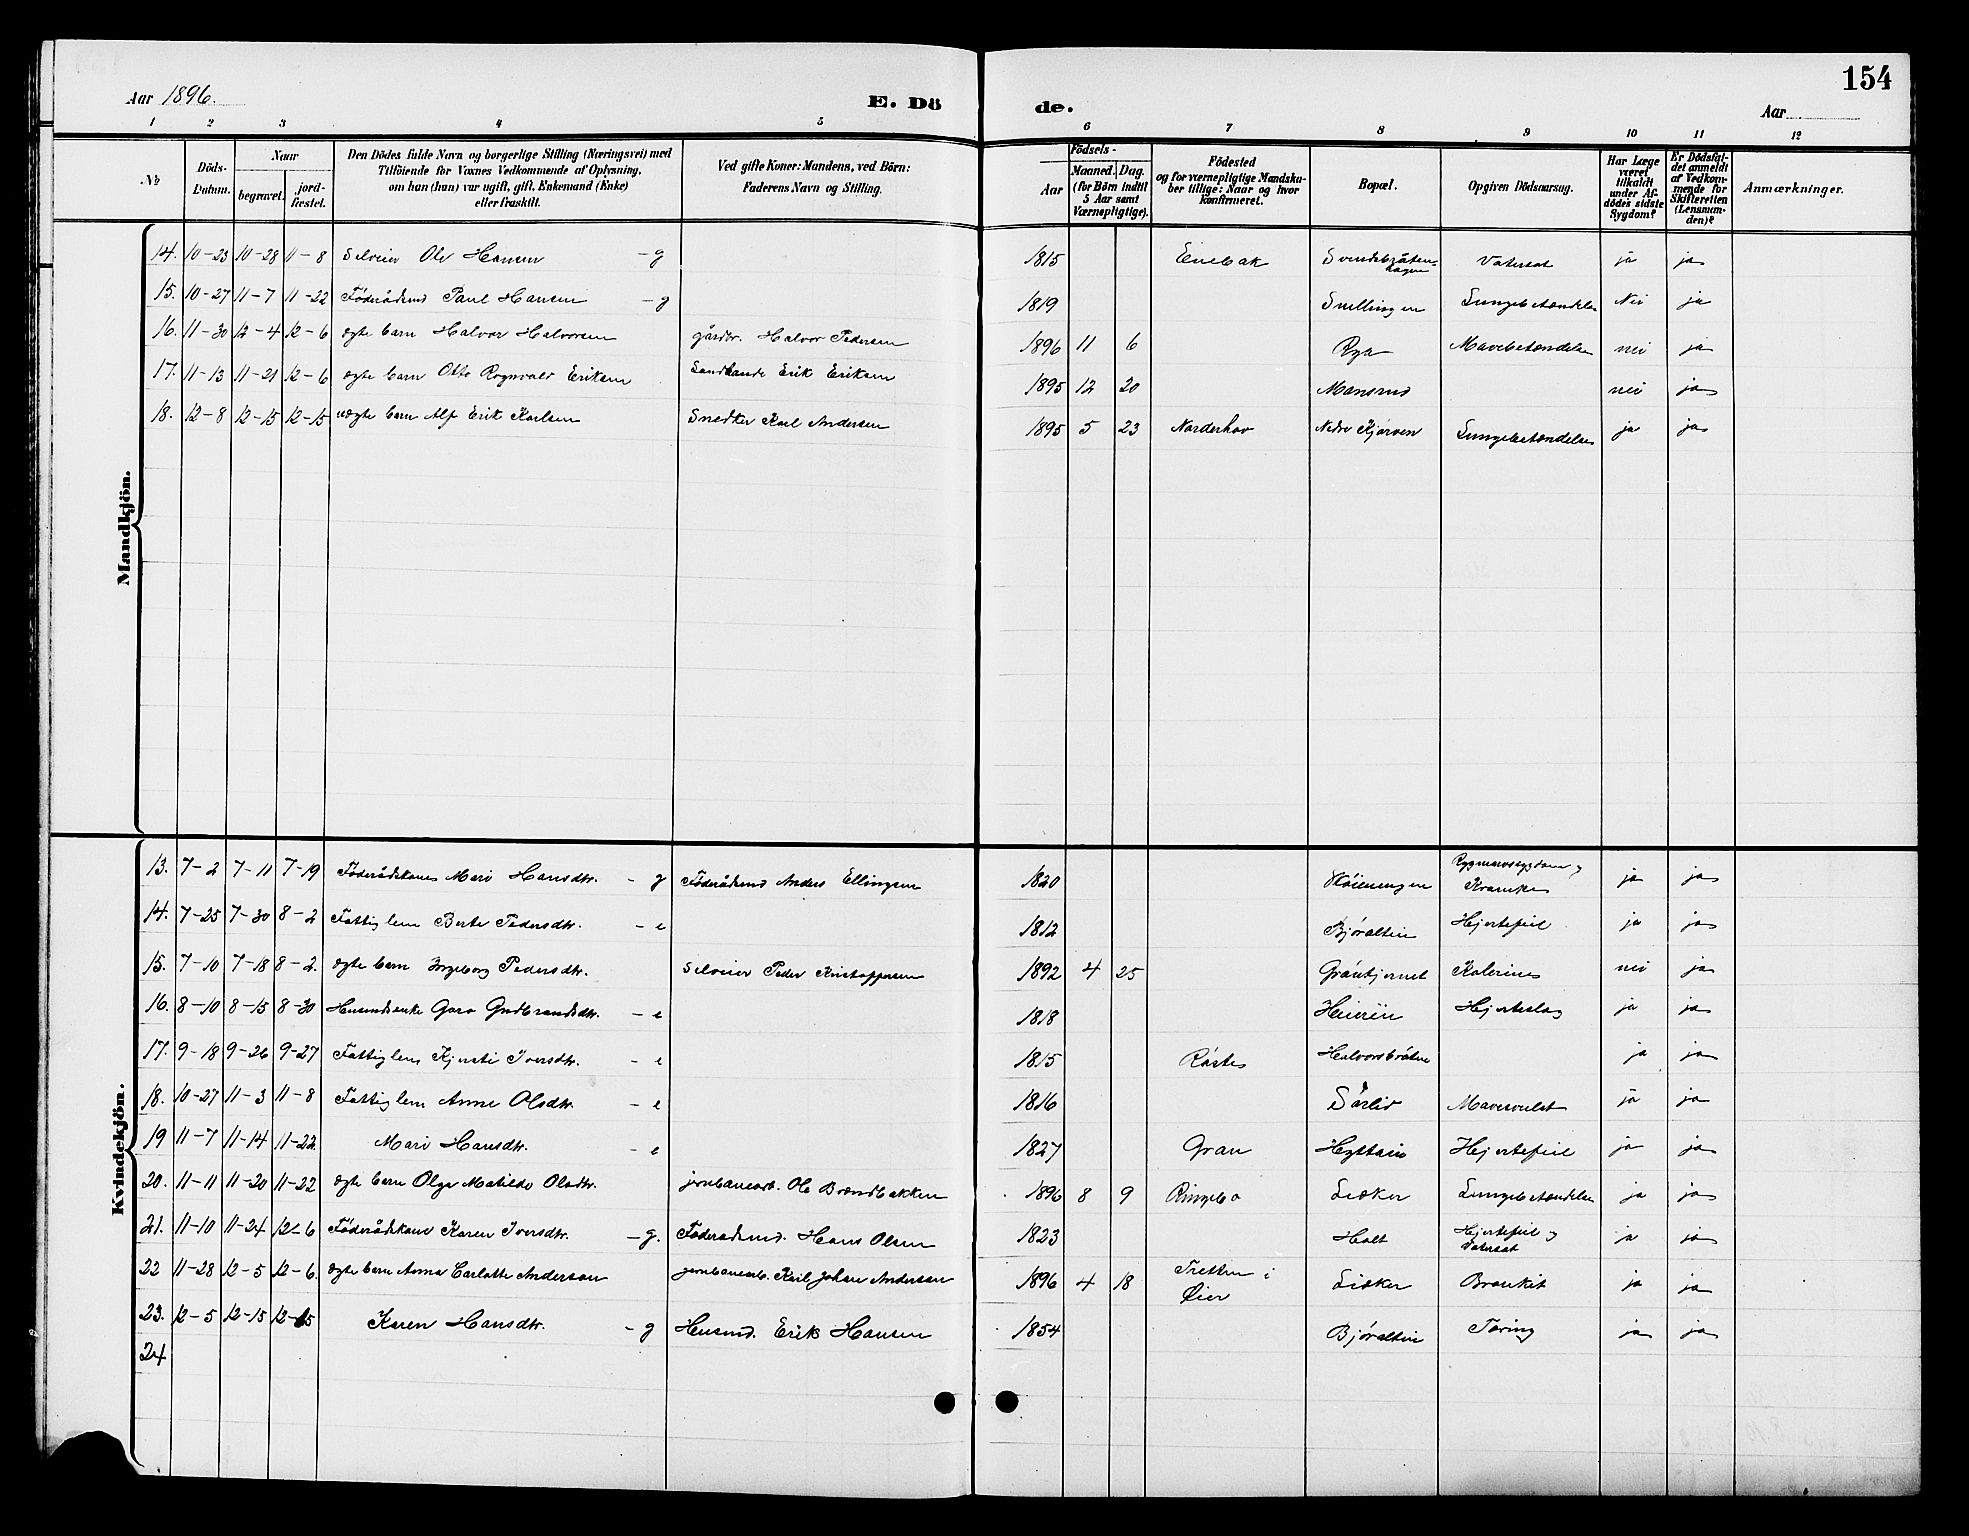 154
Aar 1896. E. Dö de. Aar
1 2 3 4 5 6 7 8 9 10 11 12
№ Döds-Datum. Naar begravet. jord-fæstet. Den Dödes fulde Navn og borgerlige Stilling (Næringsvei) med Tilföiende for Voxnes Vedkommende af Oplysning, om han (hun) var ugift, gift, Enkemand (Enke) eller fraskilt. Ved gifte Koner: Mandens, ved Börn: Faderens Navn og Stilling. Födsels- Aar Maaned. Dag. (for Börn indtil 5 Aar samt Værnepligtige). Födested og for værnepligtige Mandska-ber tillige: Naar og hvor konfirmeret. Bopæl. Opgiven Dödsaarsag. Har Læge været tilkaldt under Af-dödes sidste Sygdom? Er Dödsfal-det anmeldt af Vedkom-mende for Skifteretten (Lensman-den)? Anmærkninger.
Mandkjön.
14. 10-23 10-28 11-8 Selveier Ole Hansen - g 1815 Enebak Svendsbråten-hagen Vatersot ja ja
15. 10-27 11-7 11-22 Föderådsmd Paul Hansen - g 1819 Snellingen Lungebetændelse Nei ja
16. 11-30 12-4 12-6 ægte barn Halvor Halvorsen gårdbr. Halvor Pedersen 1896 11 6 Rya Mavebetændelse nei ja
17. 11-13 11-21 12-6 ægte barn Otto Rognvald Eriksen Landhandl Erik Eriksen 1895 12 20 Mansrud nei ja
18. 12-8 12-15 12-15 uægte barn Alf Erik Karlsen Snedker Karl Andersen 1895 5 23 Norderhov Nedre Kjørven Lungebetændelse ja ja
Kvindekjön.
13. 7-2 7-11 7-19 Föderådskone Mari Hansdtr. - g Föderådsmd Anders Ellingsen 1820 Rygmarvssygdom og Krampe ja ja
14. 7-25 7-30 8-2 Fattiglem Berte Pedersdtr. - e 1812 Bjøraltin Hjertefeil ja ja
15. 7-10 7-18 8-2. ægte barn Ingeborg Pedersdtr. Selveier Peder Kristoffersen 1892 4 25 Gråntjernet Kolerine nei ja
16. 8-10 8-15 8-30 Husmdsenke Goro Gudbrandsdtr. - e 1818 Heierin Hjerteslag ja ja
17. 9-18 9-26 9-27 Fattiglem Kjersti Iversdtr. - e 1815 Råste Halvorsbråten ja ja
18. 10-27 11-3 11-8 Fattiglem Anne Olsdtr. - e 1816 Sørlid Mavesvulst ja ja
19 11-7 11-14 11-22. Mari Hansdtr. - e 1827 Gran Hyttain Hjertefeil ja ja
20. 11-11 11-20 11-22 ægte barn Olga Matilde Olsdtr. jernbanearb. Ole Brændbakken 1896 8 9 Ringebo Lisker Lungebetændelse ja ja
21. 11-10 11-24 12-6 Föderådskone Karen Iversdtr. - g. Föderådsmd. Hans Olsen 1823 Holt Hjertefeil og Vatersot ja ja
22 11-28 12-5 12-6. ægte barn Anna Carlotte Anderson jernbanearb. Karl Johan Anderson 1896 4 18 Tretten i Øier Lisker Bronkit ja ja
23. 12-5 12-15 12-15 Karen Hansdtr. - g Husmd. Erik Hansen 1854 Bjøraltin Tæring ja ja
24